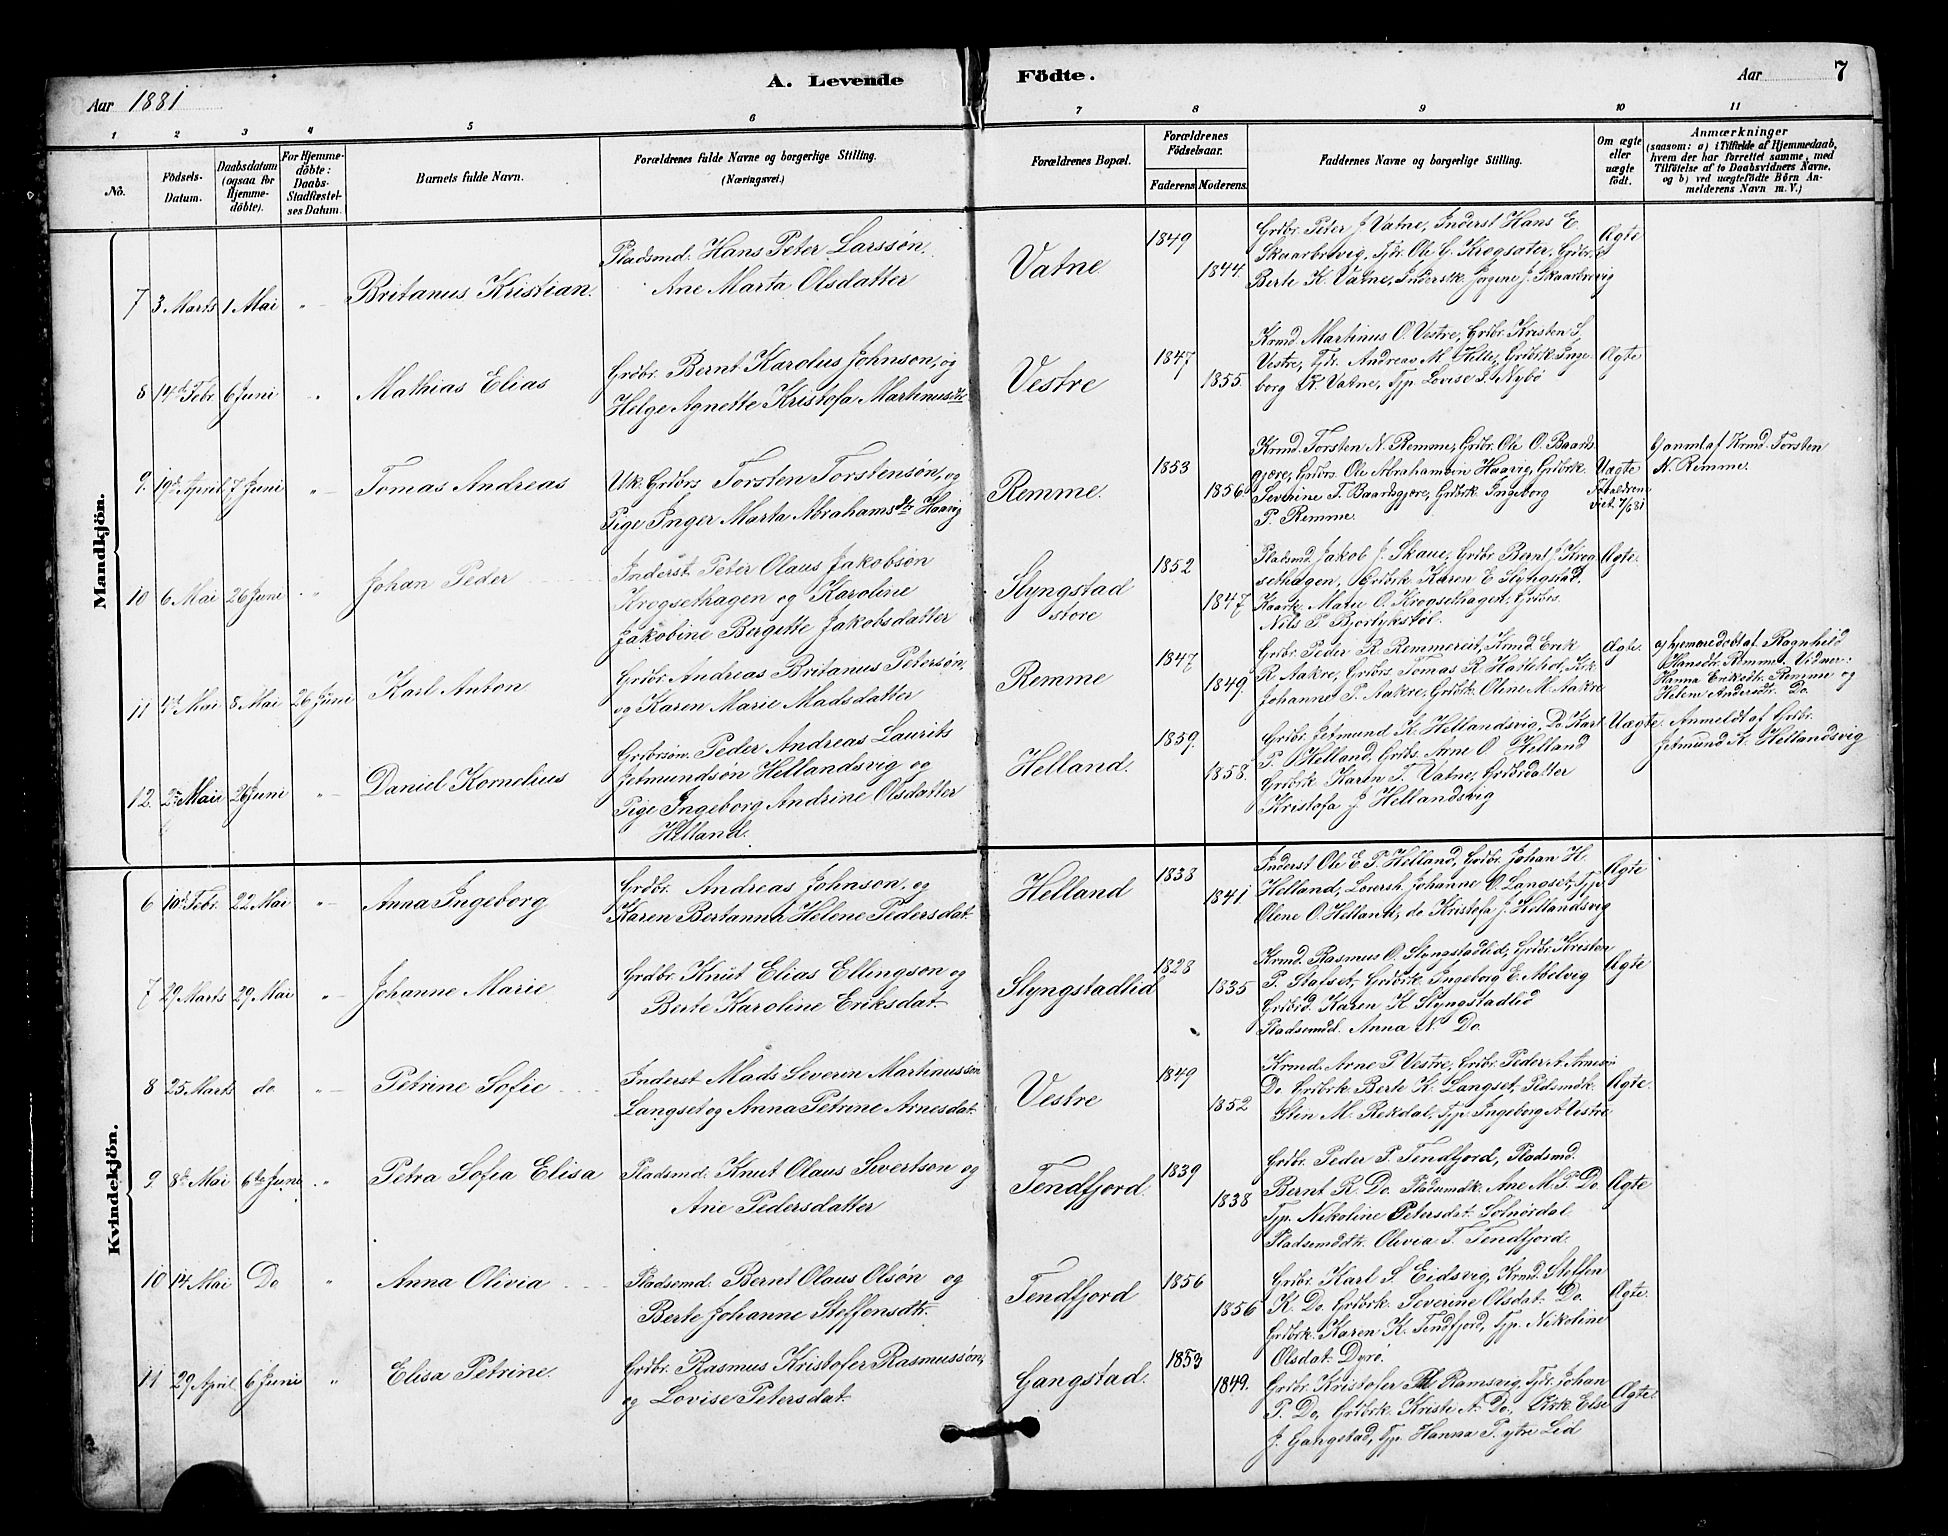 Aar 1881
A. Levende Födte.
Aar 7
1 2 3 4 5 6 7 8 9 10 11
No.
Födsels-Datum.
Daabsdatum (ogsaa for Hjemme-döbte).
For Hjemme-döbte: Daabs-Stadfæstel-ses Datum.
Barnets fulde Navn.
Forældrenes fulde Navne og borgerlige Stilling.
(Næringsvei.)
Forældrenes Bopæl.
Forældrenes Födselsaar.
Faderens. Moderens.
Faddernes Navne og borgerlige Stilling.
Om ægte eller uægte födt.
Anmærkninger
(saasom: a) i Tilfælde af Hjemmedaab, hvem der har forrettet samme, med Tilföielse af to Daabsvidners Navne, og b) ved uægtefödte Börn Anmelderens Navn m. V.)
Mandkjön.
7 3 Marts 1 Mai " Britanus Kristian.
Pladsmd. Hans Peter Larssøn,
Ane Marta Olsdatter
Vatne 1849 1844.
Grdbr. Peter J Vatne, Inderst Hans E
Skaarbrevig, Tjdr. Ole G. Krogsæter, Grdbr.d
Berte K. Vatne, Inderstk. Jogine J. Skaarbrevig
Ægte
8 14de Febr. 6 Juni " Mathias Elias
Grdbr. Bernt Karolus Johnson, og
Helge Agnette Kristofa Martinusdtr
Vestre 1847 1855.
Krmd. Martinus O. Vestre, Grdbr. Kristen S.
Vestre, Tjdr. Andreas M. Hille, Grdbrk. Inge-
borg K. Vatne, Tjp. Lovise S. Nybø
Ægte
9. 19de April 7 Juni " Tomas Andreas
Uk. Grdbrs Torsten Torstensøn, og
Pige Inger Marta Abrahamsdtr Haavig
Remme. 1853 1856
Krmd. Torsten N. Remme, Grdbr. Ole O. Baards-
gjære, Grdbrs. Ole Abrahamsøn Haavig, Grdbrk.
Severine T. Baardsgjære, Grdbrk. Ingeborg
P. Remme.
Uægte
Forældrene
viet 7/6 81
b) anml af Krmd. Torsten
N. Remme.
10 6 Mai 26 Juni " Johan Peder
Inderst. Peter Olaus Jakobsøn
Krogsethagen og Karoline
Jakobine Bergitte Jakobsdatter
Slyngstad
store
1852 1847
Pladsmd. Jakob J. Skaue, Grdbr. Bernt J. Krog-
sethagen, Grdbrk. Karen E Slyngstad.
Kaark. Mate O. Krogsethagen, Grdbrs.
Nils P. Bjorlykstøl.
Ægte.
11 1ste Mai 8 Mai 26 Juni Karl Anton
Grdbr. Andreas Britanus Petersøn,
og Karen Marie Madsdatter
Remme 1847 1849.
Grdbr. Peder R. Remmereit, Krmd. Erik
R Aakre, Grdbrs Tomas R Hatlelid, Krk.
Johanne P. Aakre, Grdbrk. Oline M. Aakre
Ægte.
a) hjemmedøbt af Ragnhild
Hansdtr. Remme. Vidner:
Hanna Eriksdtr. Remme og
Helene Andersdtr. Do.
12. 25 Mai 26 Juni " Daniel Kornelius
Grdbrsøn. Peder Andreas Laurits
Jetmundsøn Hellandsvig og
Pige Ingeborg Andrine Olsdatter
Helland.
Helland. 1859. 1858.
Grdbr. Jetmund K. Hellandsvig, Do. Karl
P. Helland, Grdbs. Arne O. Helland
Grdbrk. Karen T. Vatne, Grdbrdatter
Kristofa J. Hellandsvig
Uægte.
Anmeldt af Grdbr.
Jetmund K. Hellandsvig
Kvindekjön.
6 10de Febr. 22 Mai " Anna Ingeborg
Grdbr. Andreas Johnson, og
Karen Bertanna Helene Pedersdat.
Helland 1838 1841
Inderst Ole E P. Helland, Grdbr. Johan H.
Helland, Lærersh. Johanne O. Langset, Tjp.
Olene O. Helland, do Kristofa J. Hellandsvig
Ægte
7 29 Marts 29 Mai " Johanne Marie
Grdbr. Knut Elias Ellingson og
Berte Karoline Eriksdat.
Slyngstadlid 1828 1835
Krmd. Rasmus O. Slyngstadlid, Grdbr. Kristen
P. Stafset, Grdbrk. Ingeborg E. Abelvig
Grdbrd. Karen K. Slyngstadlid
Pladsemdd. Anna N. Do.
Ægte
8 25 Marts do " Petrine Sofie
Inderst Mads Severin Martinussøn
Langset og Anna Petrine Arnesdat.
Vestre 1849 1852
Krmd. Arne P Vestre, Grdbr. Peder A. Arnesøn
Do. Grdbrk. Berte K. Langset, Pldsmdk.
Stin M. Rekdal, Tjp. Ingeborg A. Vestre
Ægte.
9. 8de Mai 6te Juni " Petra Sofia Elisa
Pladsmd. Knut Olaus Sivertson og
Ane Pedersdatter
Tendfjord. 1839 1838
Grdbr. Peder P. Tendfjord, Pladsmd.
Bernt R. Do. Pladsmdk. Ane M. P. Do.
Tjp. Nikoline Petersdat. Solnørdal.
Pladsemddtr. Olivia T. Tendfjord.
Ægte
10 14 Mai Do " Anna Olivia
Pladsemd. Bernt Olaus Olsøn og
Berte Johanne Steffensdtr.
Tendfjord 1856 1856
Grdbr. Karl S. Eidsvig, Krmd. Steffen
K. Do. Grdbrk. Severine Olsdat. Do.
Grdbrk. Karen K. Tendfjord, Tjp. Nikoline
Olsdat. Dyrø.
Ægte.
11 29 April 6 Juni " Elisa Petrine.
Grdbr. Rasmus Kristofer Rasmussøn,
og Lovise Petersdat.
Gangstad. 1853 1849.
Grdbr. Kristofer Ramsvig, Tjdr. Johan
P. Do, Grdbrk. Kristi A. Do., Else
J. Gangstad, Tjp. Hanna P. ytre Lid
Ægte.